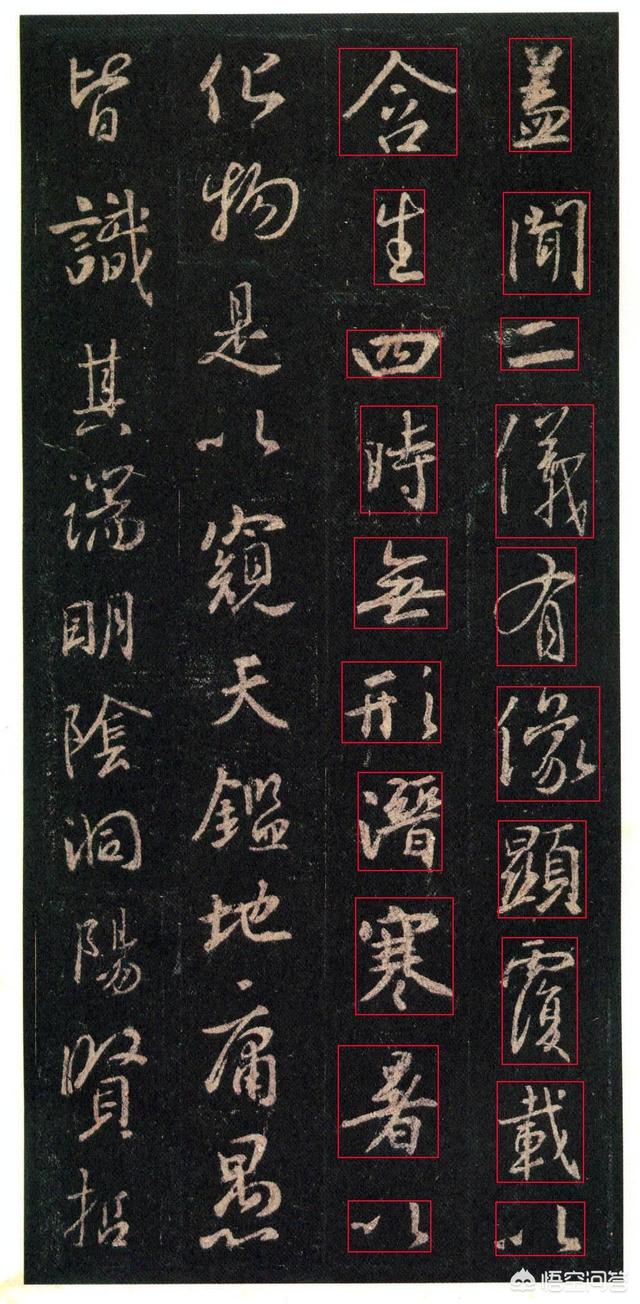 盖聞二儀有像顯覆載以
含生四時無形潛寒暑以
化物是以窺天鑑地庸愚
皆識其端明陰洞陽賢哲
悟空问答